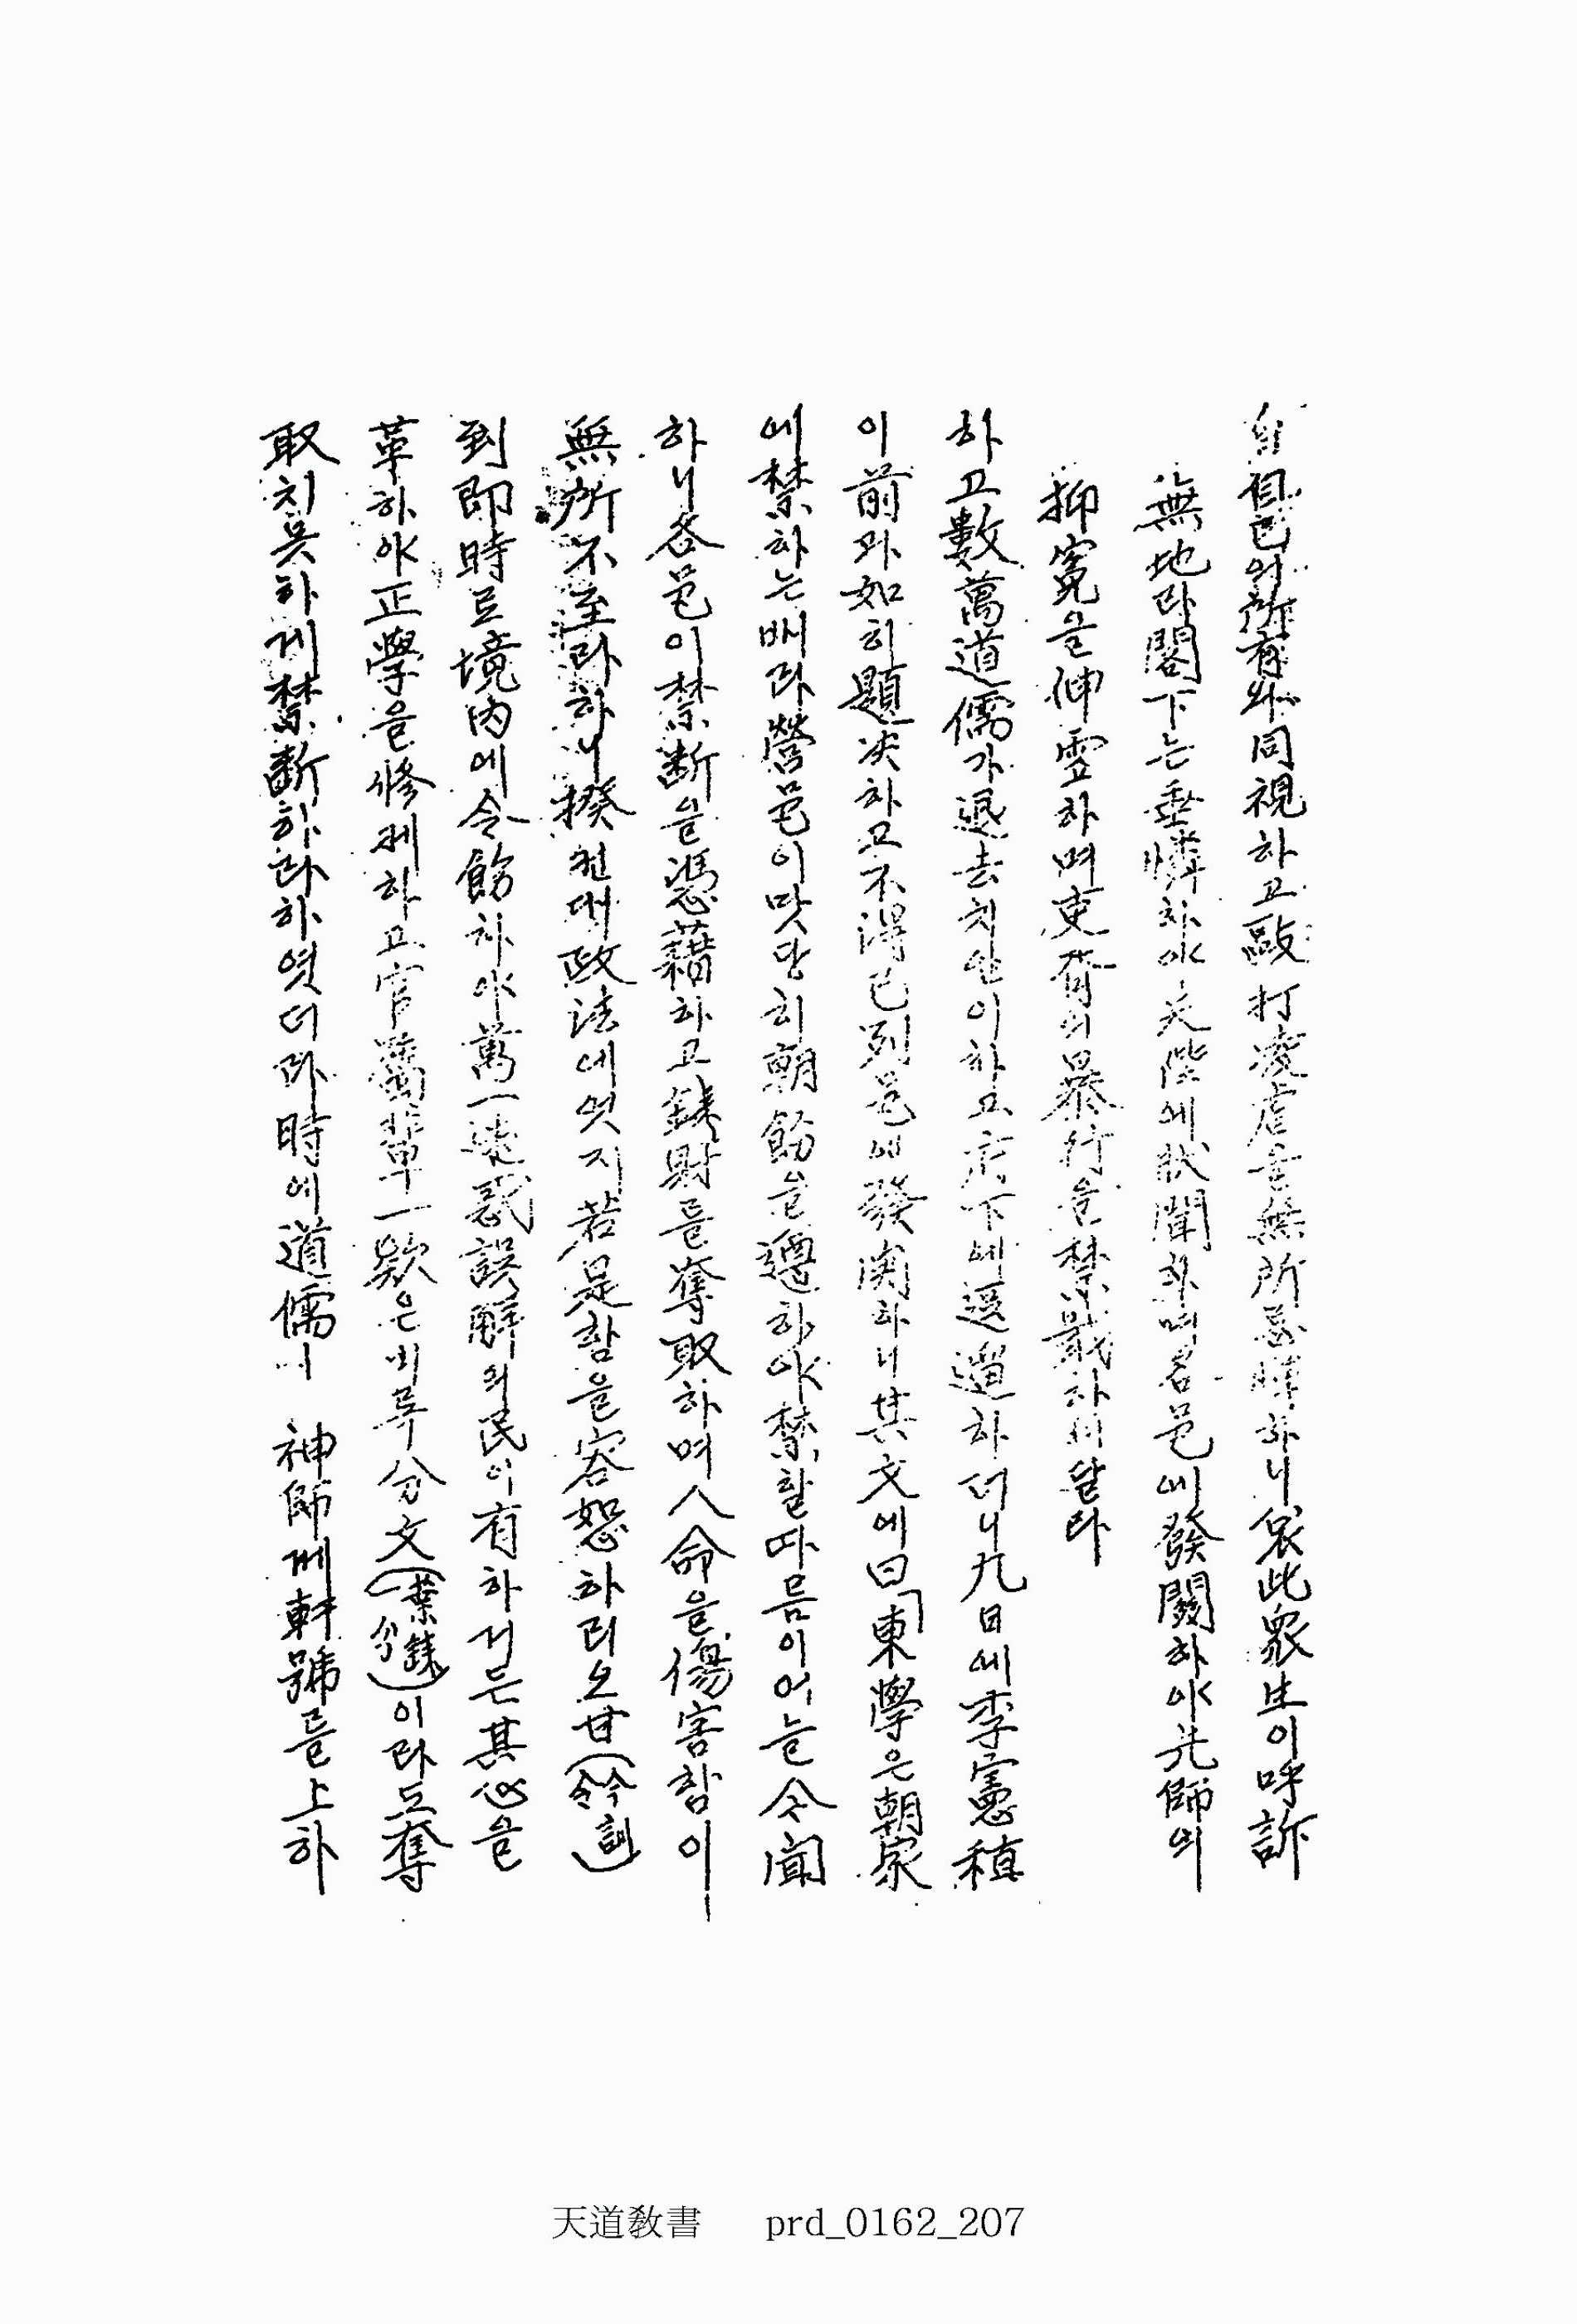 自己의所有와同視하고毆打凌虐을無所忌憚하니哀此衆生이呼訴
無地라閤下는垂憐하야天陛에狀聞하며各邑에發關하야先師의
抑寃을伸雪하며吏胥의暴行을禁戢하서달라
하고數萬道儒가退去치안이하고府下에逗遛하더니九日에李憲稙
이前과如히題决하고不得已列邑에發関하니其文에曰「東學은朝家
에禁하는배라營邑이맛당히朝飭을遵하야禁할따름이어늘今聞
하니各邑이禁斷을憑藉하고錢財를奪取하며人命을傷害함이
無所不至라하니揆컨대政法에엇지若是함을容恕하리오甘(令飭訓)
到即時로境內에令飭하야萬一迷惑誤解의民이有하거든其心을
革하야正學을修케하고官屬輩一欵은비록分文(葉錢分)이라도奪
取치못하게禁斷하라하엿더라時에道儒ㅣ 神師께軒號를上하
天道敎書 prd_0162_207